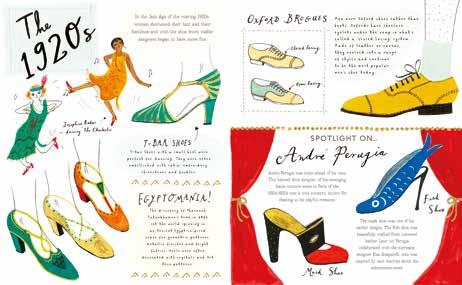 The
1920s
In the Jazz Age of the roaring 1920s
women shortened their hair and their
hemlines and with the shoe more visible
designers began to have more fun.
Josephine Baker
dancing the Charleston
T-BAR SHOES
T-bar shoes with a small heel were
perfect for dancing. They were often
embellished with satin, embroidery,
rhinestones and beading.
EGYPTOMANIA!
The discovery of Pharaoh
Tutankhamun's tomb in 1922
set the world spinning
Ancient Egypt-inspired
geometric patterns,
metallic finishes and bright
fabric. Heels were often
decorated with crystals and Art
Deco patterns
OXFORD BROGUES
closed lacing
open lacing
Men wore Oxford shoes rather than
boots. Oxfords have shoelace
eyelets under the vamp in what's
called a 'closed lacing' system.
Made of leather or canvas,
they evolved into a range
of styles and continue
to be the most popular
men's shoe today.
SPOTLIGHT ON...
André Perugia
André Perugia was miles ahead of his time.
This beloved shoe designer of the swinging
Paris of the
1920s
was a true
Fish Shoe
Mask Shoe
The mask shoe was one of his
earlier designs. The fish shoe was
beautifully crafted from coloured
leather. Later on Perugia
collaborated with the
designer Elsa Schiaparelli, who was
inspired by